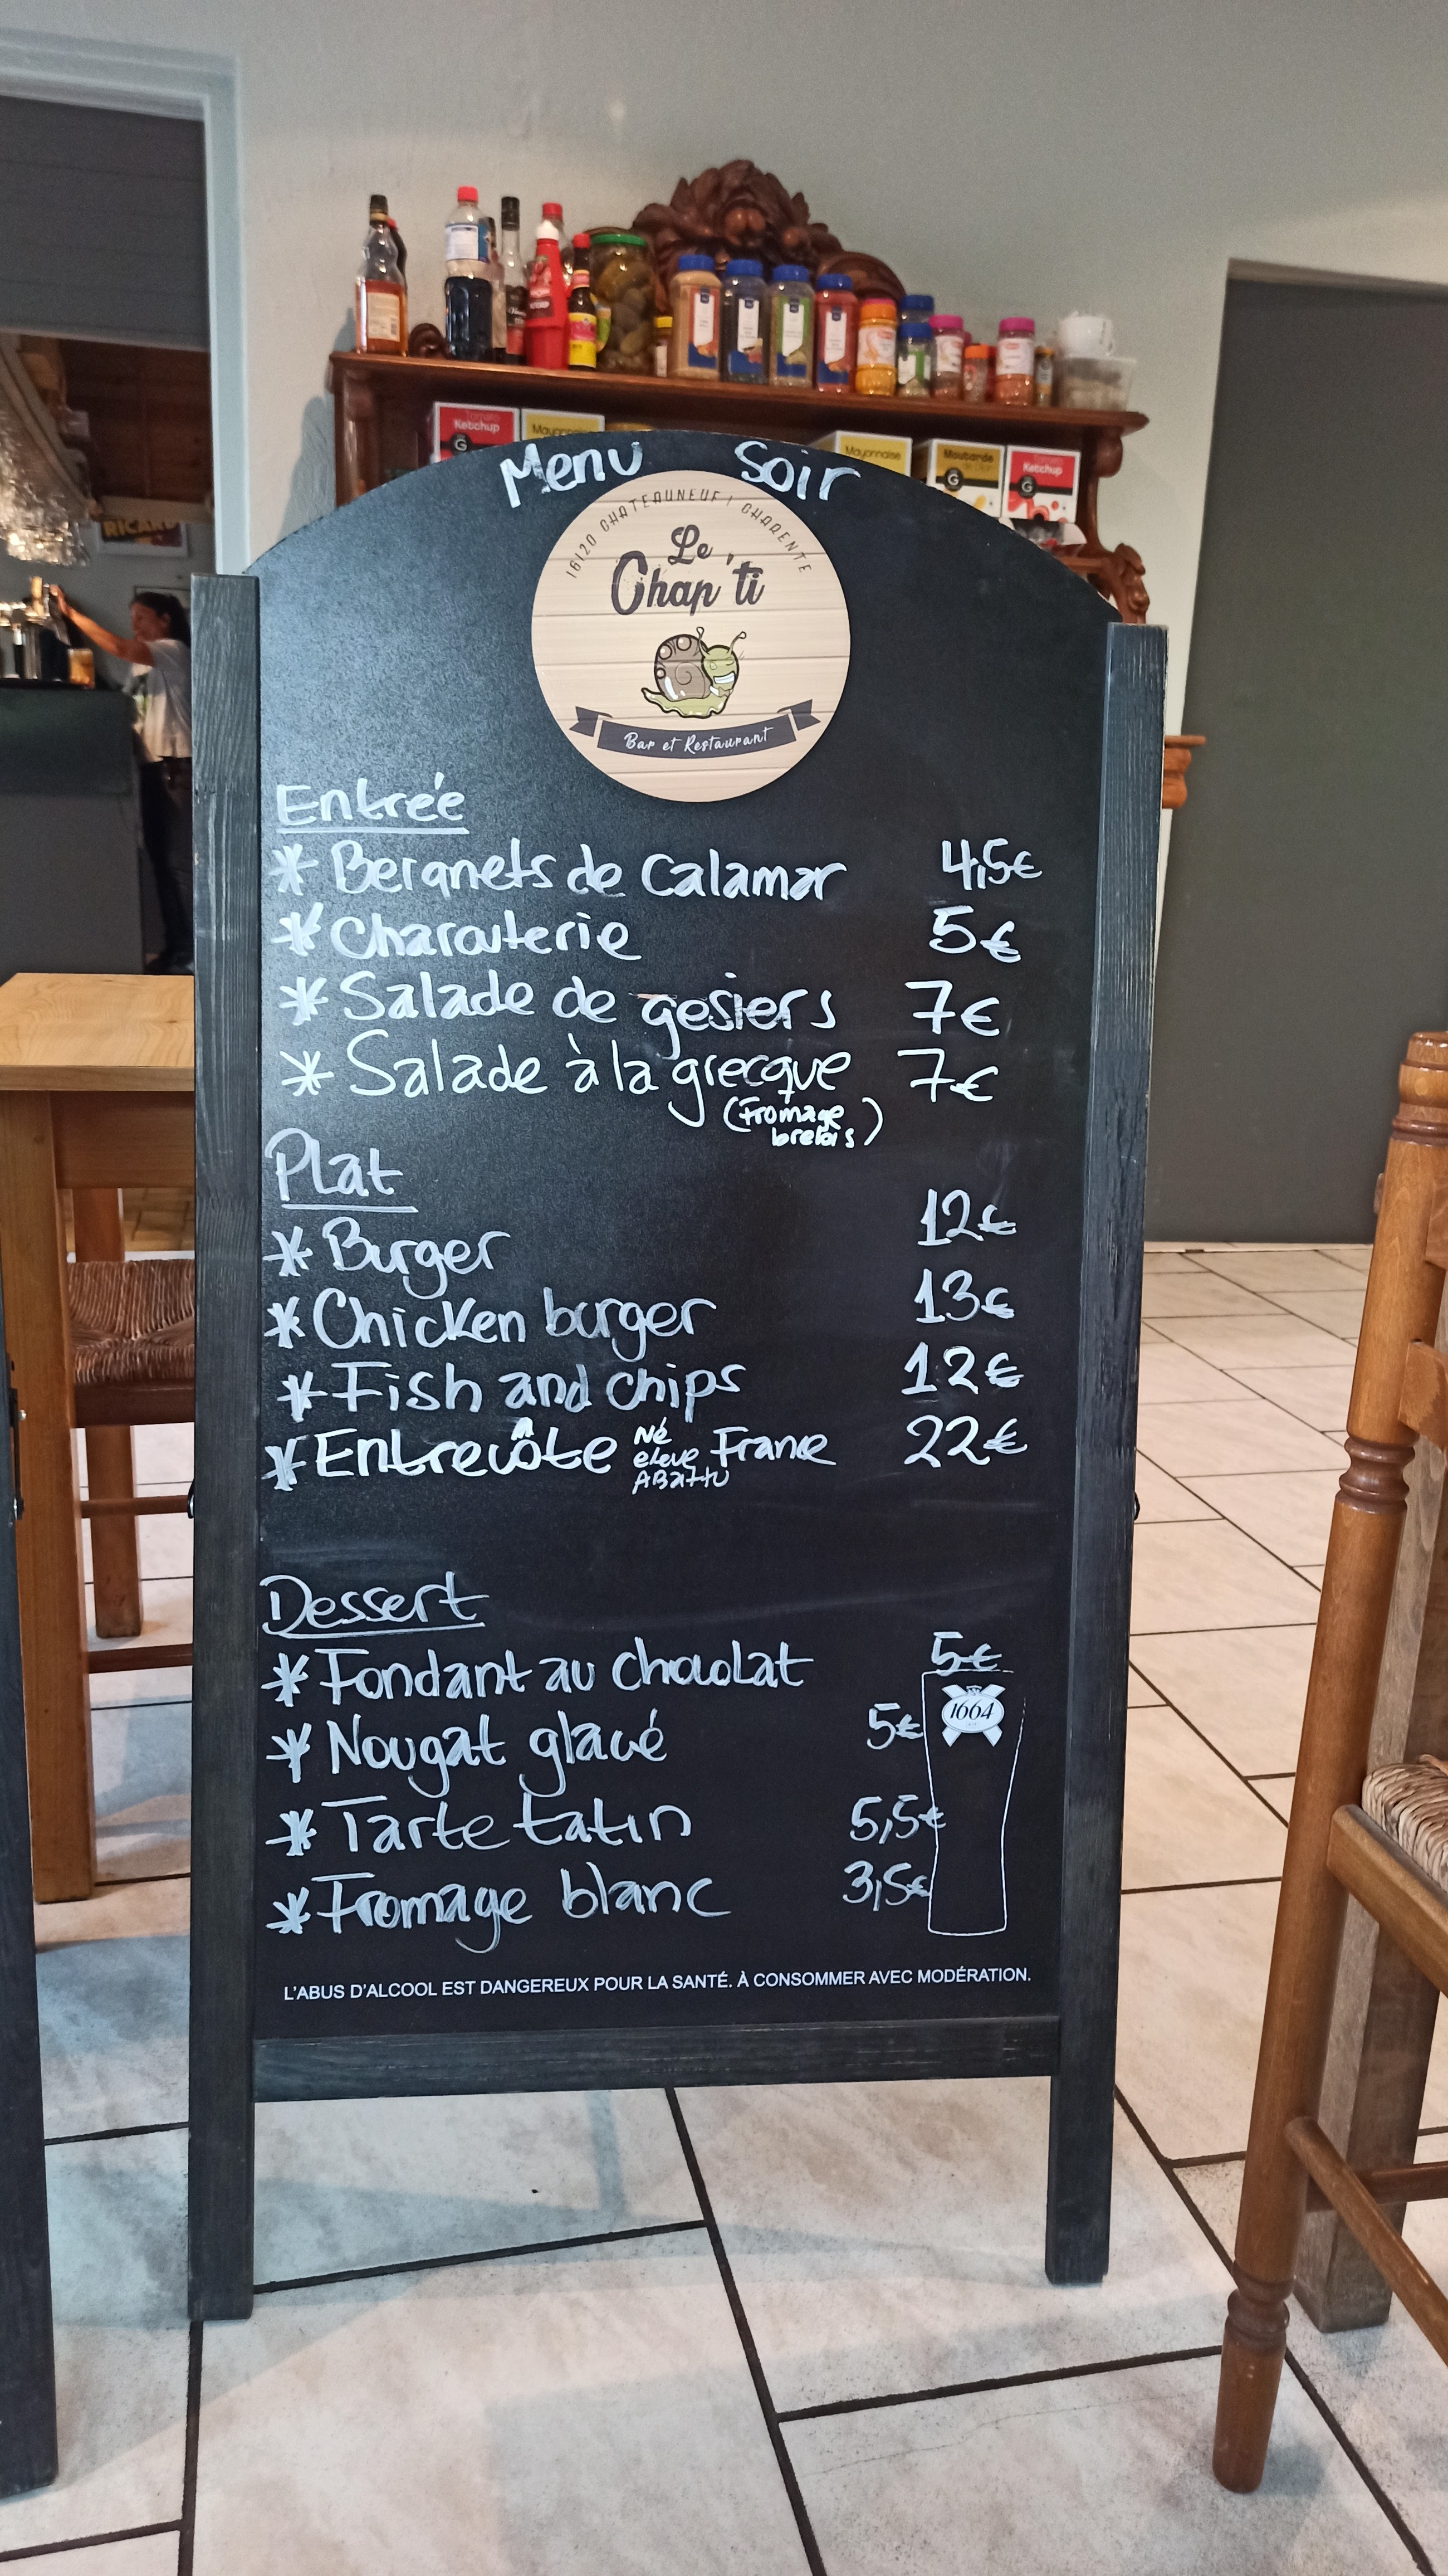 Tomato
Ketchup
G
Mayonnaise
Mayonnaise
Moutarde
de Dijon
G
Tomato
Ketchup
G
RICARD
Menu Soir
16120 CHATEAUNEUF / CHARENTE
Le
Chap'ti
Bar et Restaurant
Entrée
* Beignets de Calamar 4,5€
* Charcuterie 5€
* Salade de gesiers 7€
* Salade à la grecque 7€
(Fromage
brebis)
Plat
* Burger 12€
* Chicken burger 13€
* Fish and chips 12€
* Entrecôte Né éleve ABattu France 22€
Dessert
* Fondant au chocolat 5€
1664
* Nougat glacé 5€
* Tarte tatin 5,5€
* Fromage blanc 3,5€
L'ABUS D'ALCOOL EST DANGEREUX POUR LA SANTÉ. À CONSOMMER AVEC MODÉRATION.